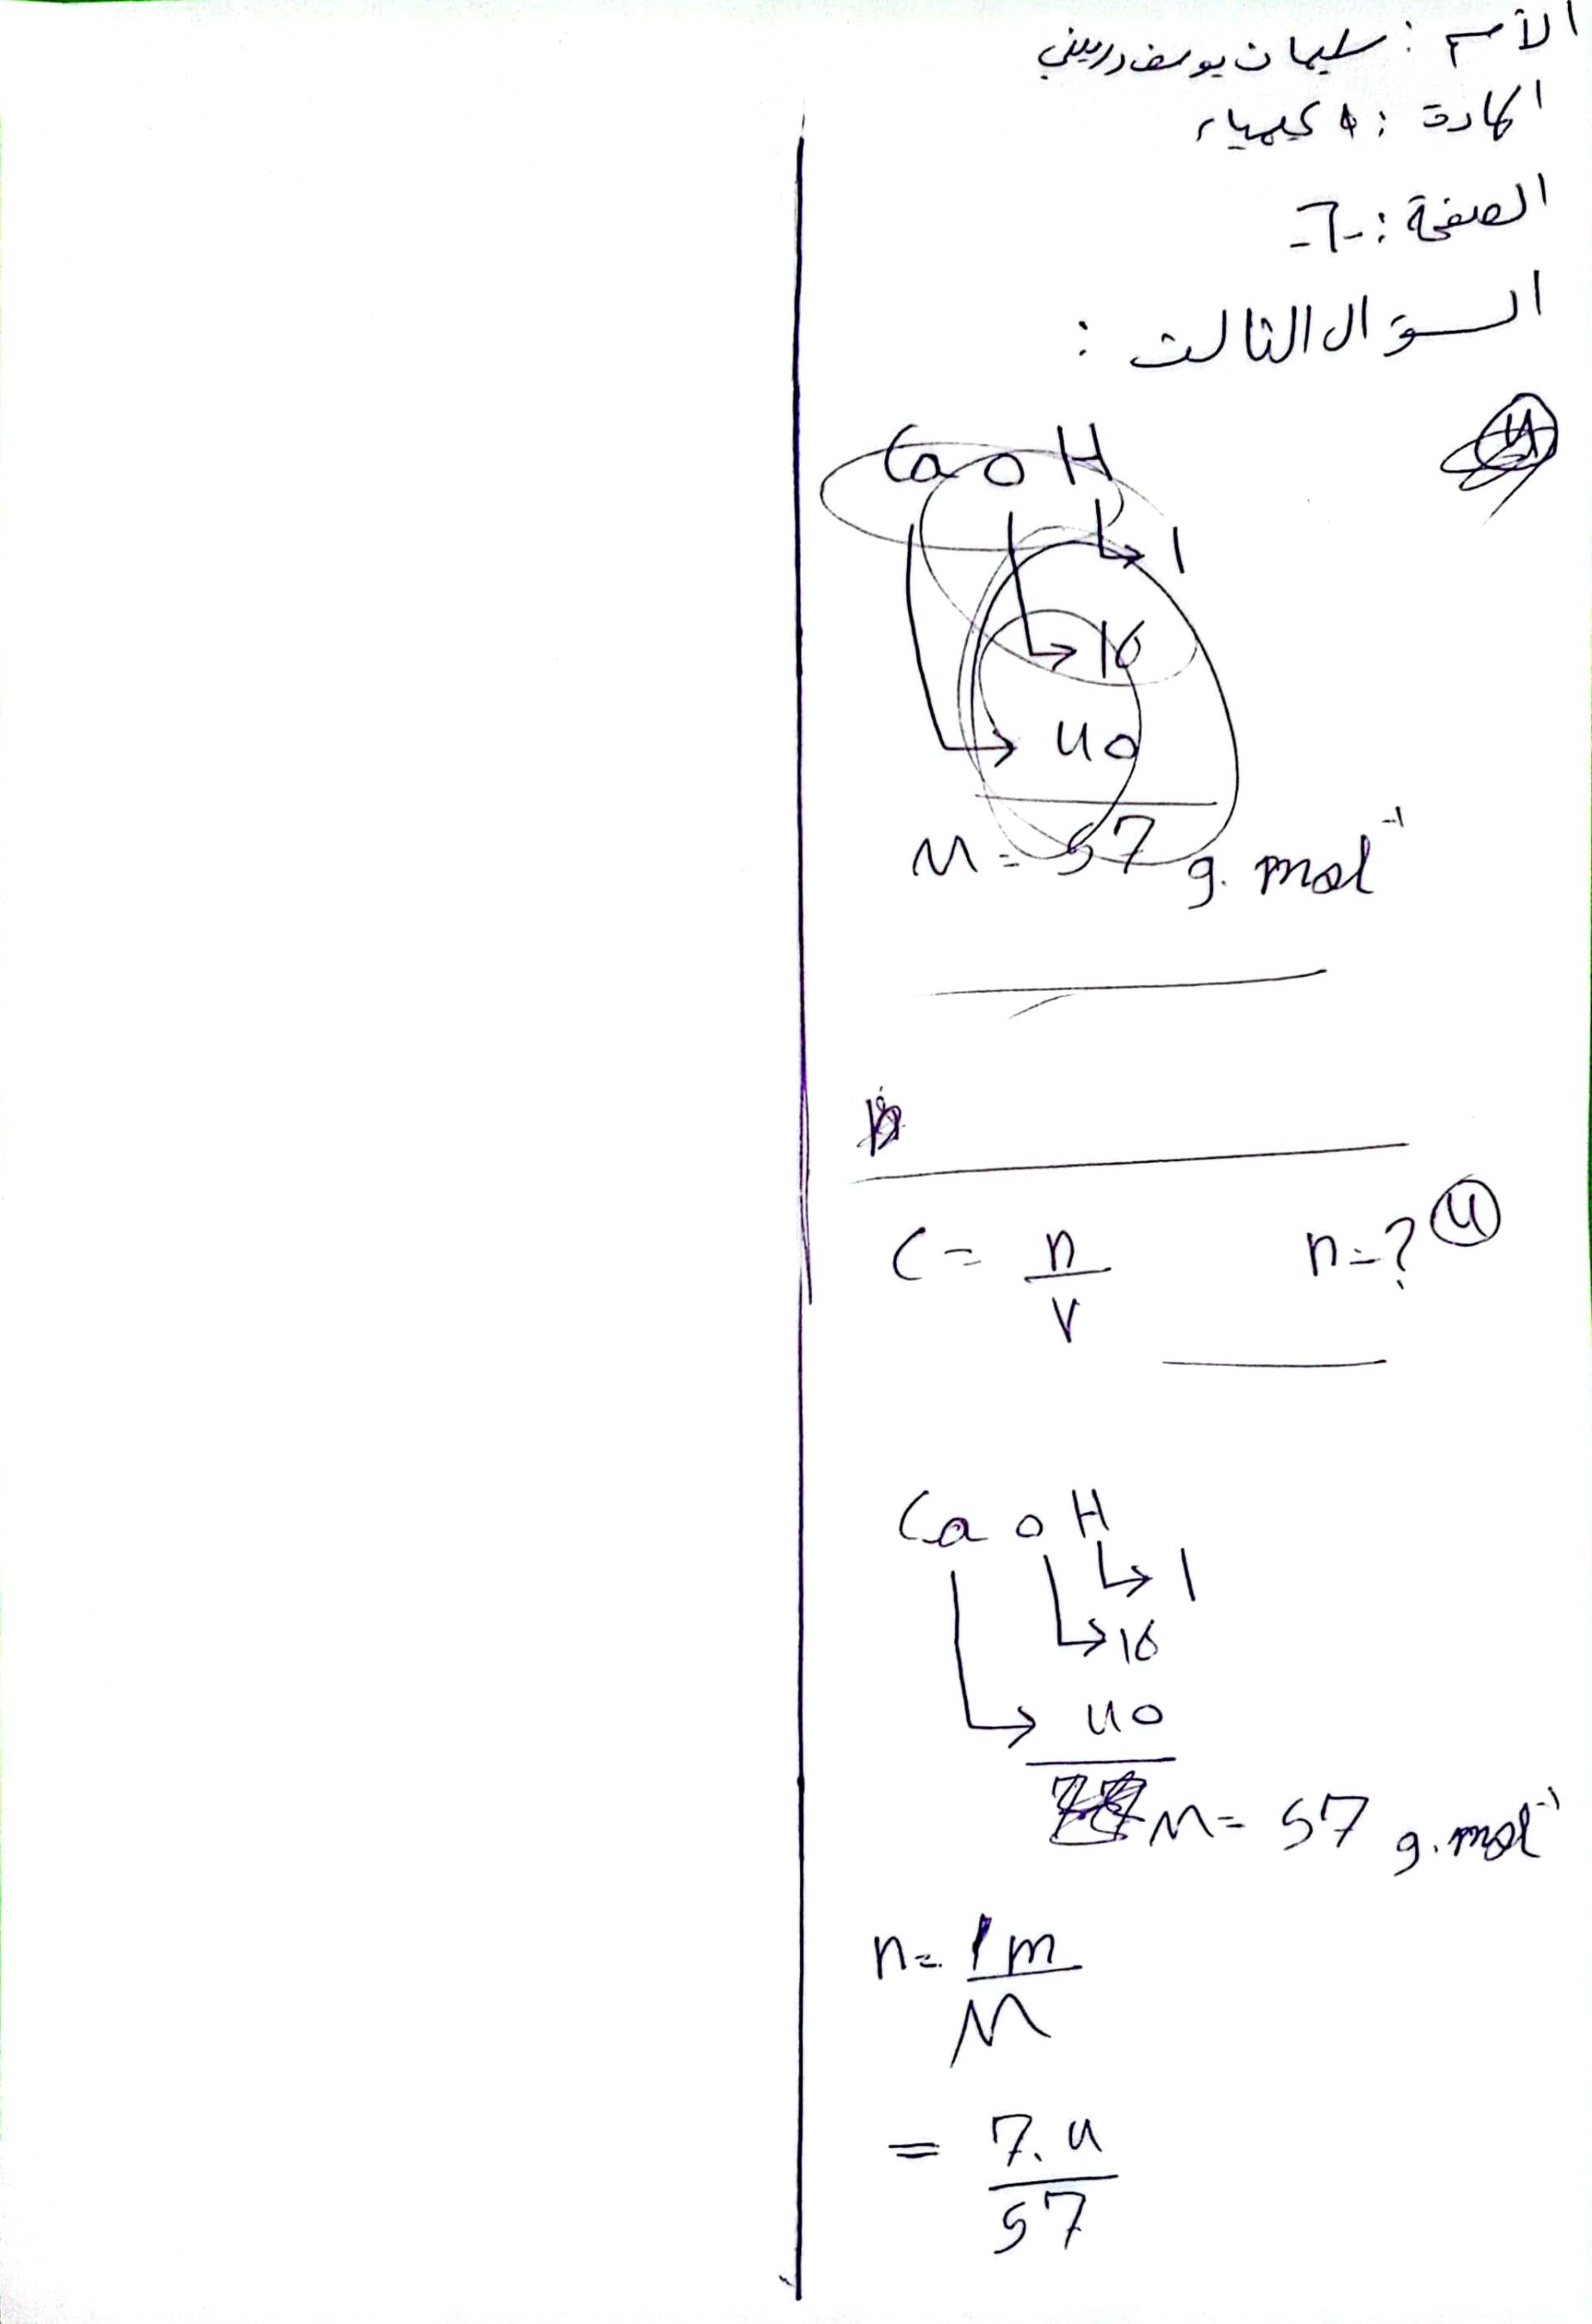 الأسم : سليمان يوسف درييني
المادة : الكيمياء
الصفحة : -6-
السؤال الثالث :
Ca O H
1
16
40
M = 57 g. mol⁻¹
C = n / V n = ? 4
Ca O H
1
16
40
M = 57 g. mol⁻¹
n = m / M
= 7.4 / 57